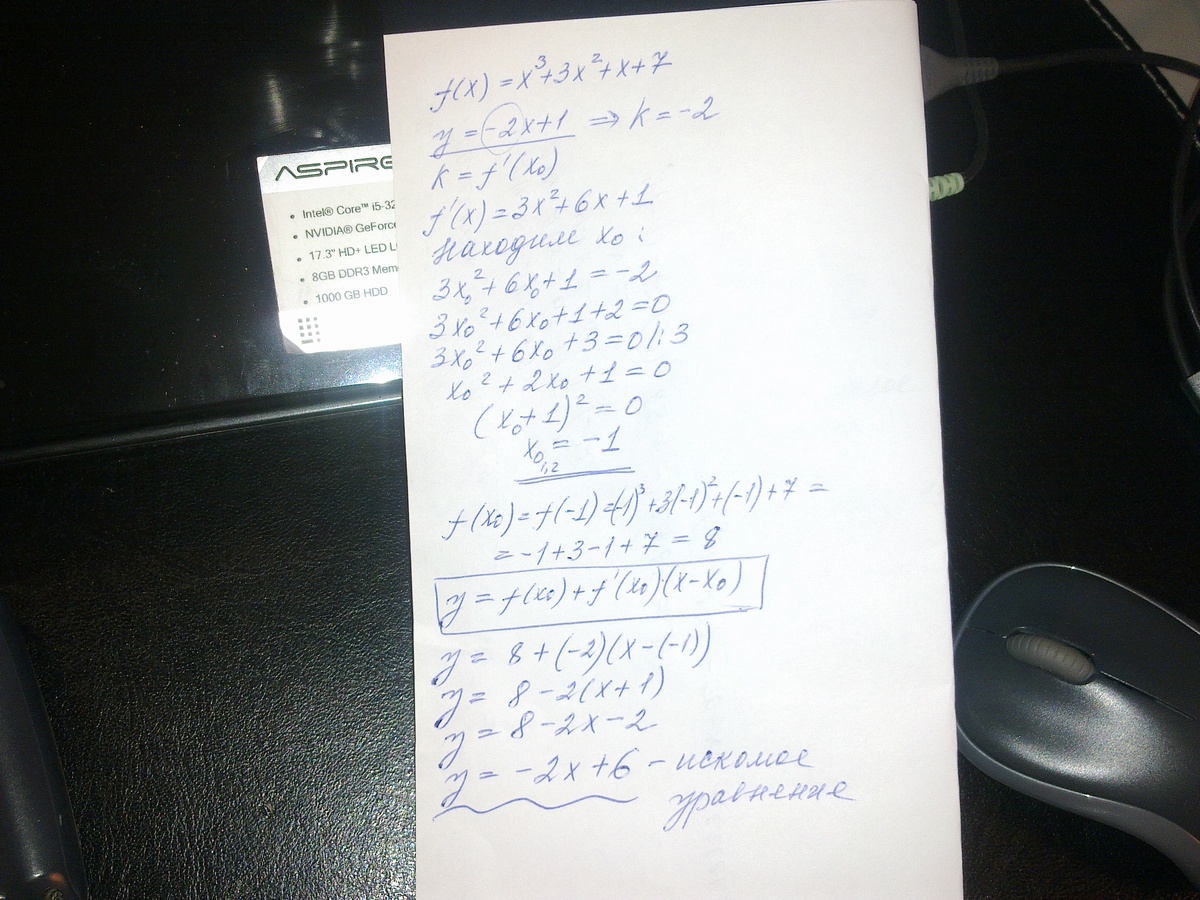 ASPIRE
• Intel® Core™ i5-32
• NVIDIA® GeForce
• 17.3" HD+ LED L
• 8GB DDR3 Mem
• 1000 GB HDD
f(x) = x³+3x²+x+7
y = -2x+1 ⇒ k = -2
k = f'(x₀)
f'(x) = 3x²+6x+1
Находим x₀ :
3x₀²+6x₀+1 = -2
3x₀²+6x₀+1+2=0
3x₀²+6x₀+3=0 |:3
x₀²+2x₀+1=0
(x₀+1)²=0
x₀₁,₂ = -1
f(x₀)=f(-1)=(-1)³+3(-1)²+(-1)+7 =
= -1+3-1+7 = 8
y = f(x₀)+f'(x₀)(x-x₀)
y = 8+(-2)(x-(-1))
y = 8-2(x+1)
y = 8-2x-2
y = -2x+6 - искомое
уравнение